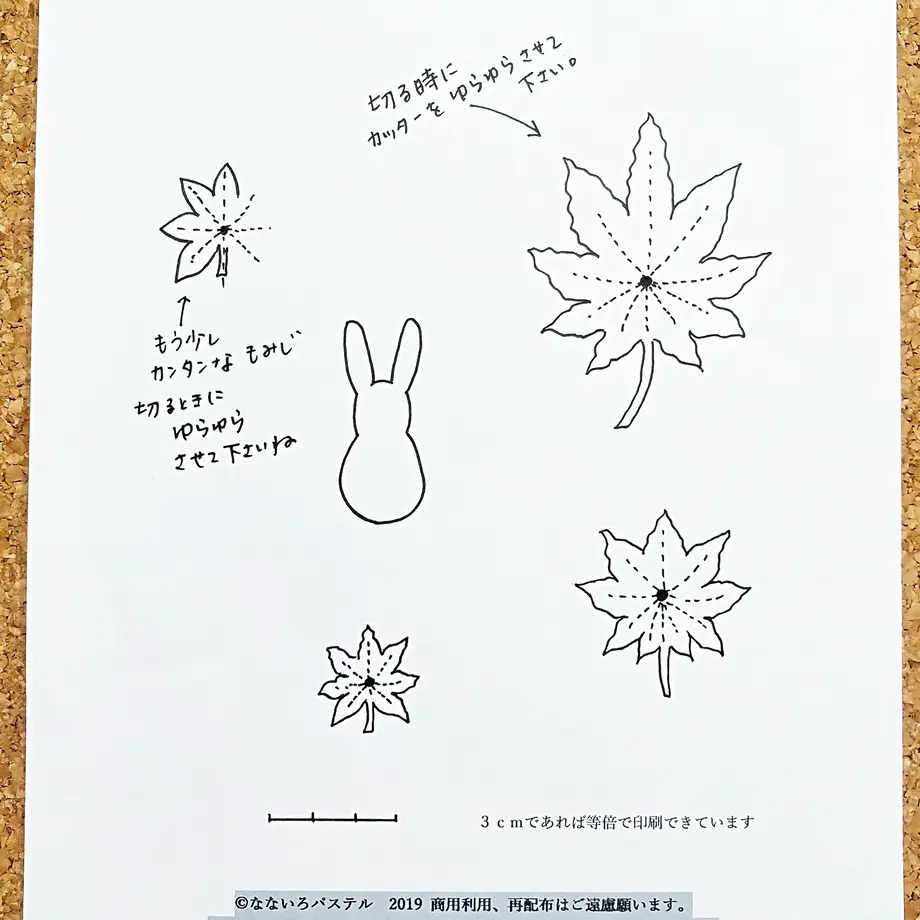 切る時に
カッターを ゆらゆらさせて
下さい。
もう少し
カンタンな もみじ
切るときに
ゆらゆら
させて下さいね
3cmであれば等倍で印刷できています
©なないろパステル 2019 商用利用、再配布はご遠慮願います。